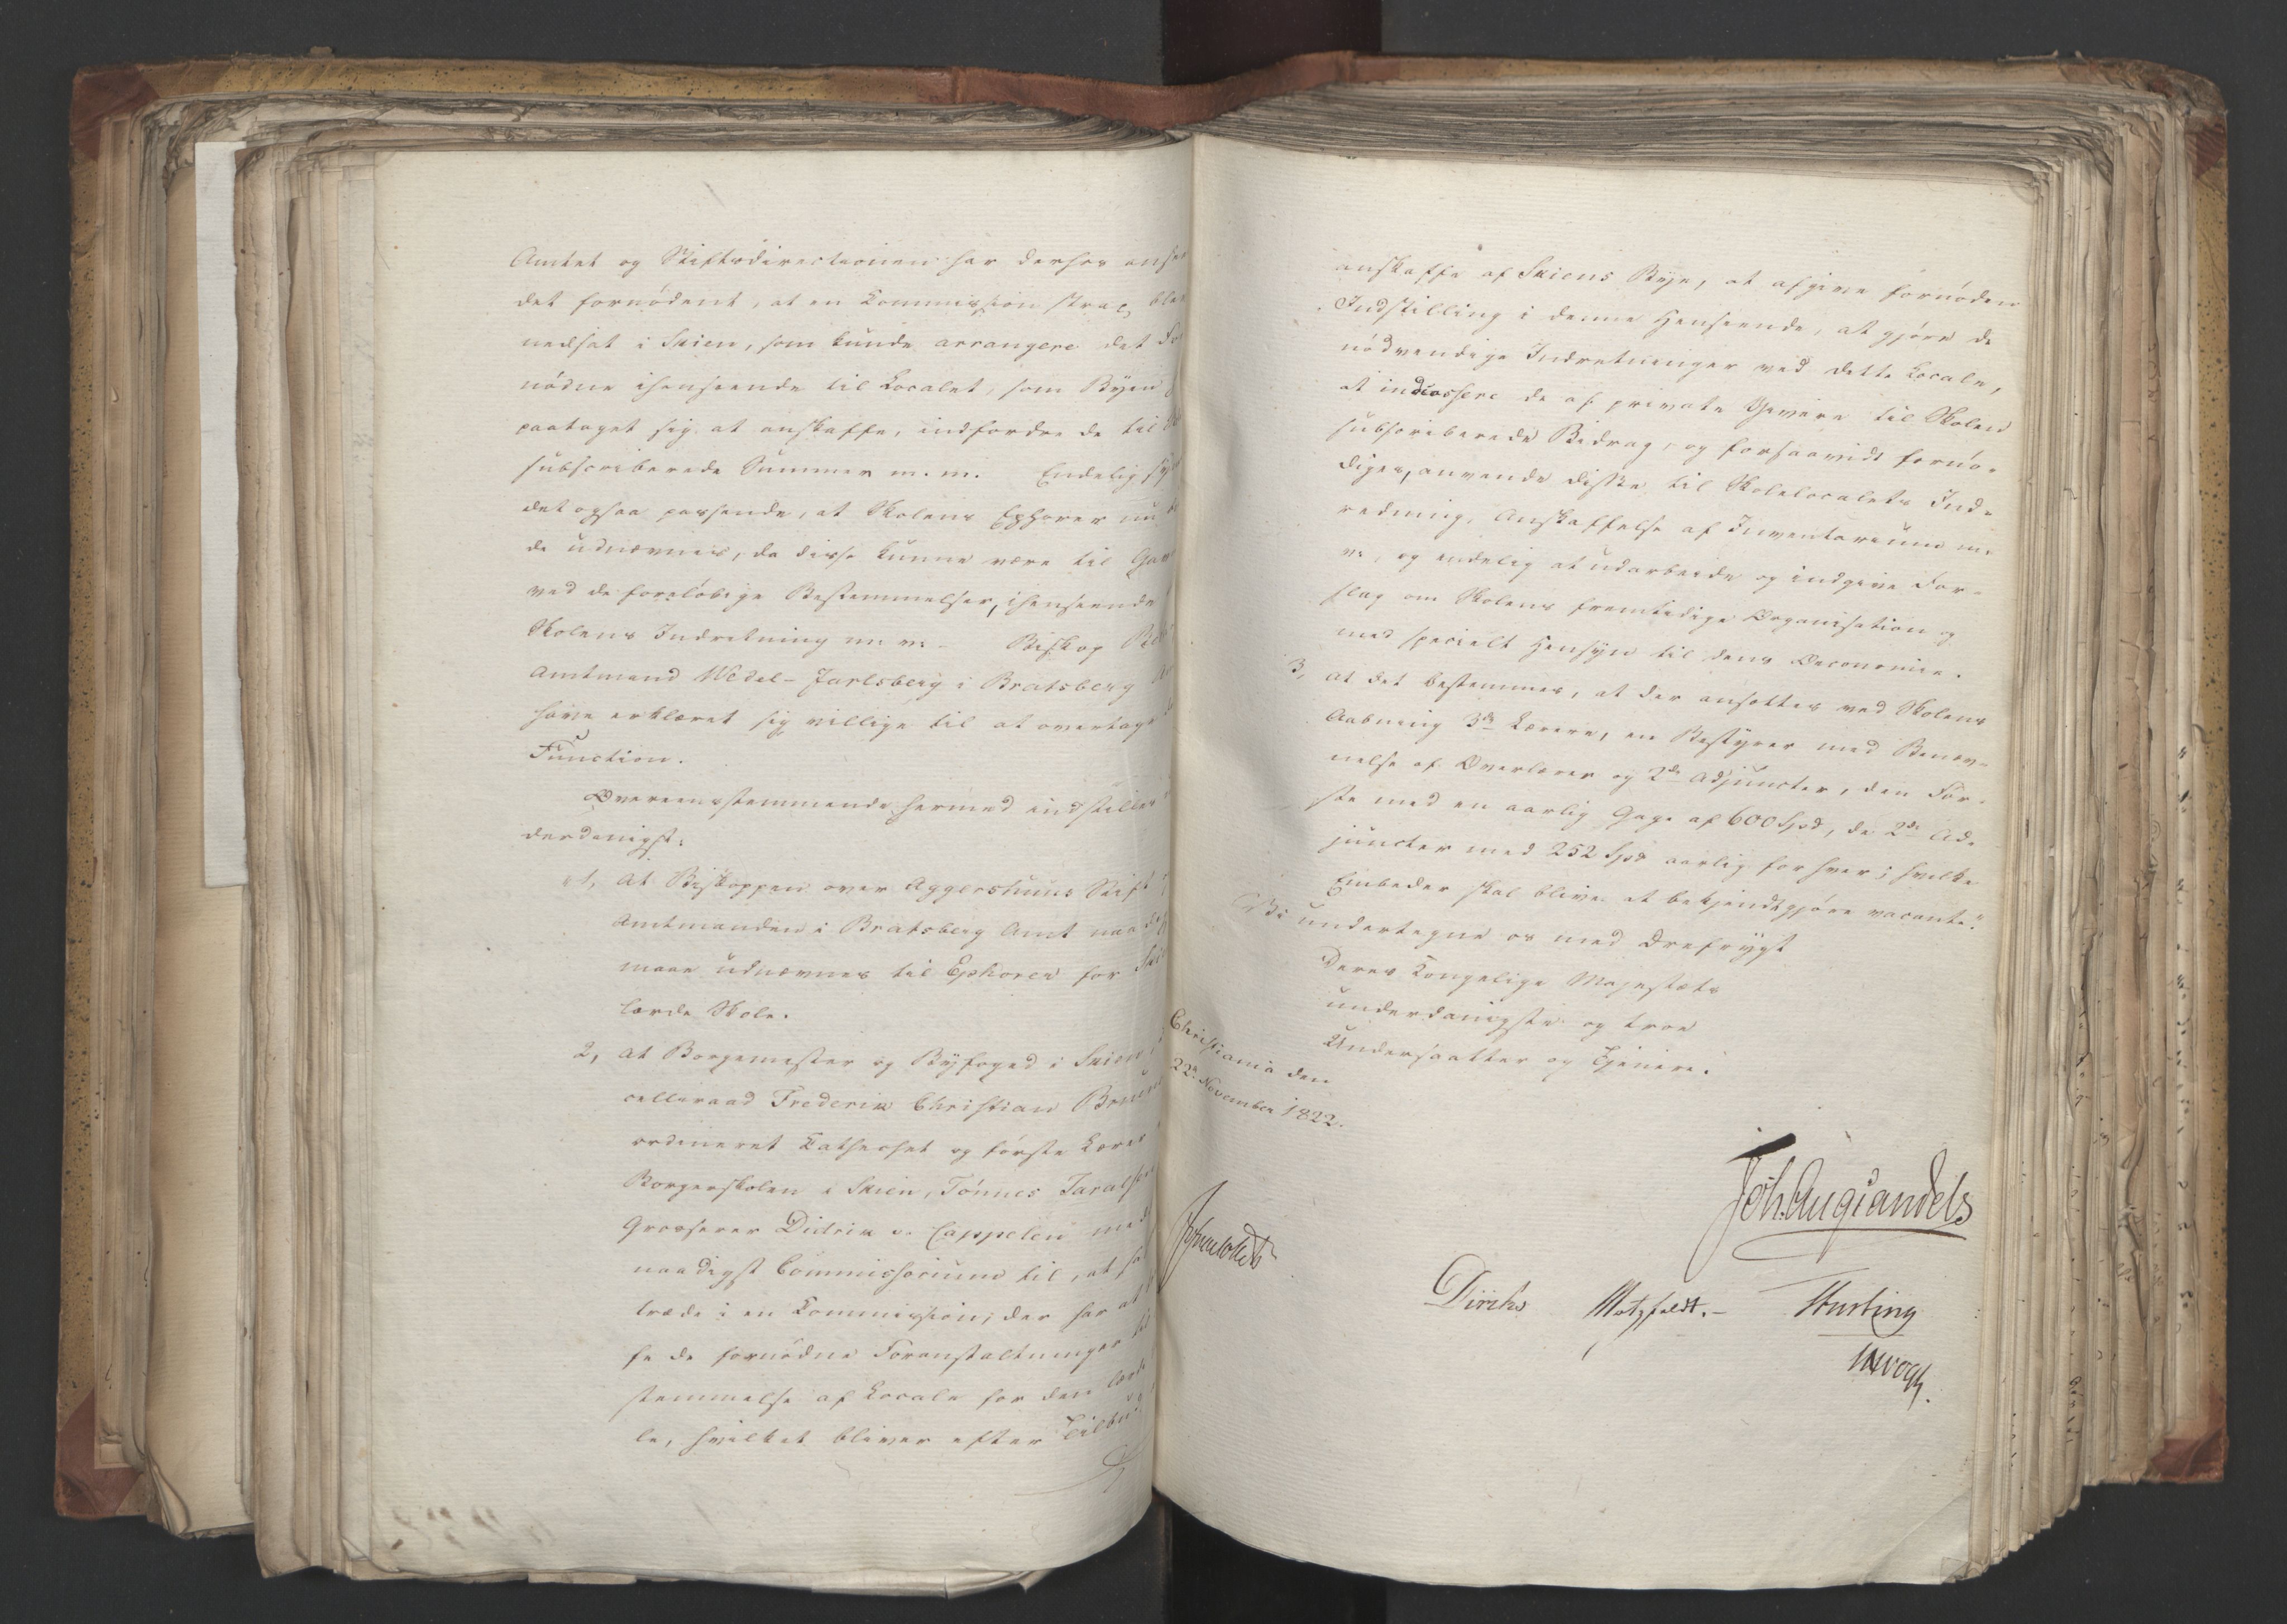 Amtet og Stiftsdirectionen har derhos anse
det fornødent, at en Kommission strax ble
nedsat i Skien, som kunde arrangere det For
nødne ihenseende til Localet, som Byen
paataget sig at anskaffe, indfordre de til
subscriberede Summer m. m. Endelig sy
det ogsaa passende, at Skolens Ephorer nu
de udnævnes, da disse kunne være til Gav
ved de foreløbige Bestemmelser, ihenseende
Skolens Indretning m. v. – Biskop
Amtmand Wedel-Jarlsberg i Bratsberg
have erklæret sig villige til at overtage
Function.
Overeensstemmende hermed indstilles
derdanigst:
"1, At Biskoppen over Aggershuus Stift
Amtmanden i Bratsberg Amt naa
maae udnævnes til Ephorer for Skie
lærde Skole.
2, at Borgemester og Byfoged i Skien,
celliraad Frederik Christian
ordineret Kathechet og første Lærer
Borgerskolen i Skien, Tönnes Taralsen
Grosserer Didrik v. Cappelen med
naadigst Commissorium til, at
træde i en Kommission, der har at
fe de fornødne Foranstaltninger
stemmelse af Locale for den lærde
le, hvilket bliver efter Tilbud
anskaffe af Skiens Bye, at afgive fornøden
Indstilling i denne Henseende, at gjøre de
nødvendige Indretninger ved dette Locale,
at indcassere de af private Givere til Skolen
subscriberede Bidrag, og forsaavidt fornø-
diges, anvende disse til Skolelocalets Ind-
redning, Anskaffelse af Inventarium m.
v., og endelig at udarbeide og indgive For-
slag om Skolens fremtidige Organisation og
med specielt Hensyn til dens Oeconomie.
3, at det bestemmes, at der ansættes ved Skolens
Aabning 3de Lærere, en Bestyrer med Benæv-
nelse af Overlærer og 2de Adjuncter, den Før-
ste med en aarlig Gage af 600 Spd, de 2de Ad-
juncter med 252 Spd aarlig for hver; hvilke
Embeder skal blive at bekjendtgjøre vacante."
Vi undertegne os med Ærefrygt
Deres Kongelige Majestæts
underdanigste og troe
Undersaatter og Tjenere.
Christiania den
22de November 1822.
Joh. Aug. Sandels
Diriks Motzfeldt. –